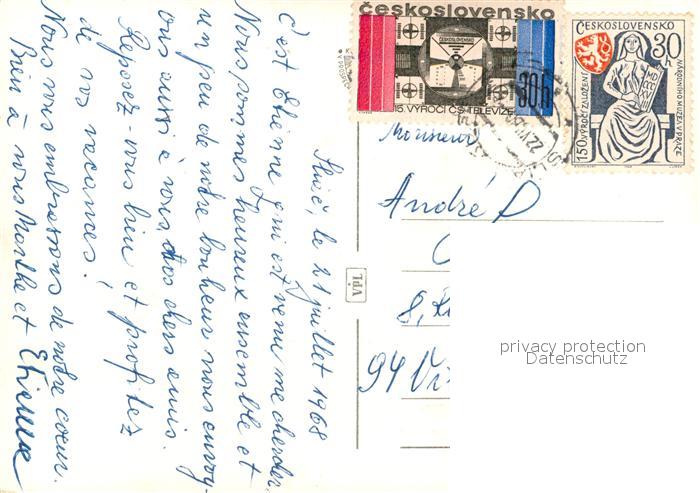 Sliač, le 21 juillet 1968
C'est Etienne qui est venu me chercher.
Nous sommes heureux ensemble et
un peu de notre bonheur nous envoy-
ons aussi à vous chers amis.
Reposez-vous bien et profitez
de vos vacances.
Nous vous embrassons de notre coeur.
Bien à vous Marthe et Etienne
ČESKOSLOVENSKO
30h
15. VÝROČÍ ČS. TELEVIZE
ČESKOSLOVENSKO
30h
150. VÝROČÍ ZALOŽENÍ
NÁRODNÍHO MUZEA V PRAZE
MD
CCC
XVIII
VPL
Monsieur
André D
8,
94 Vi
privacy protection
Datenschutz